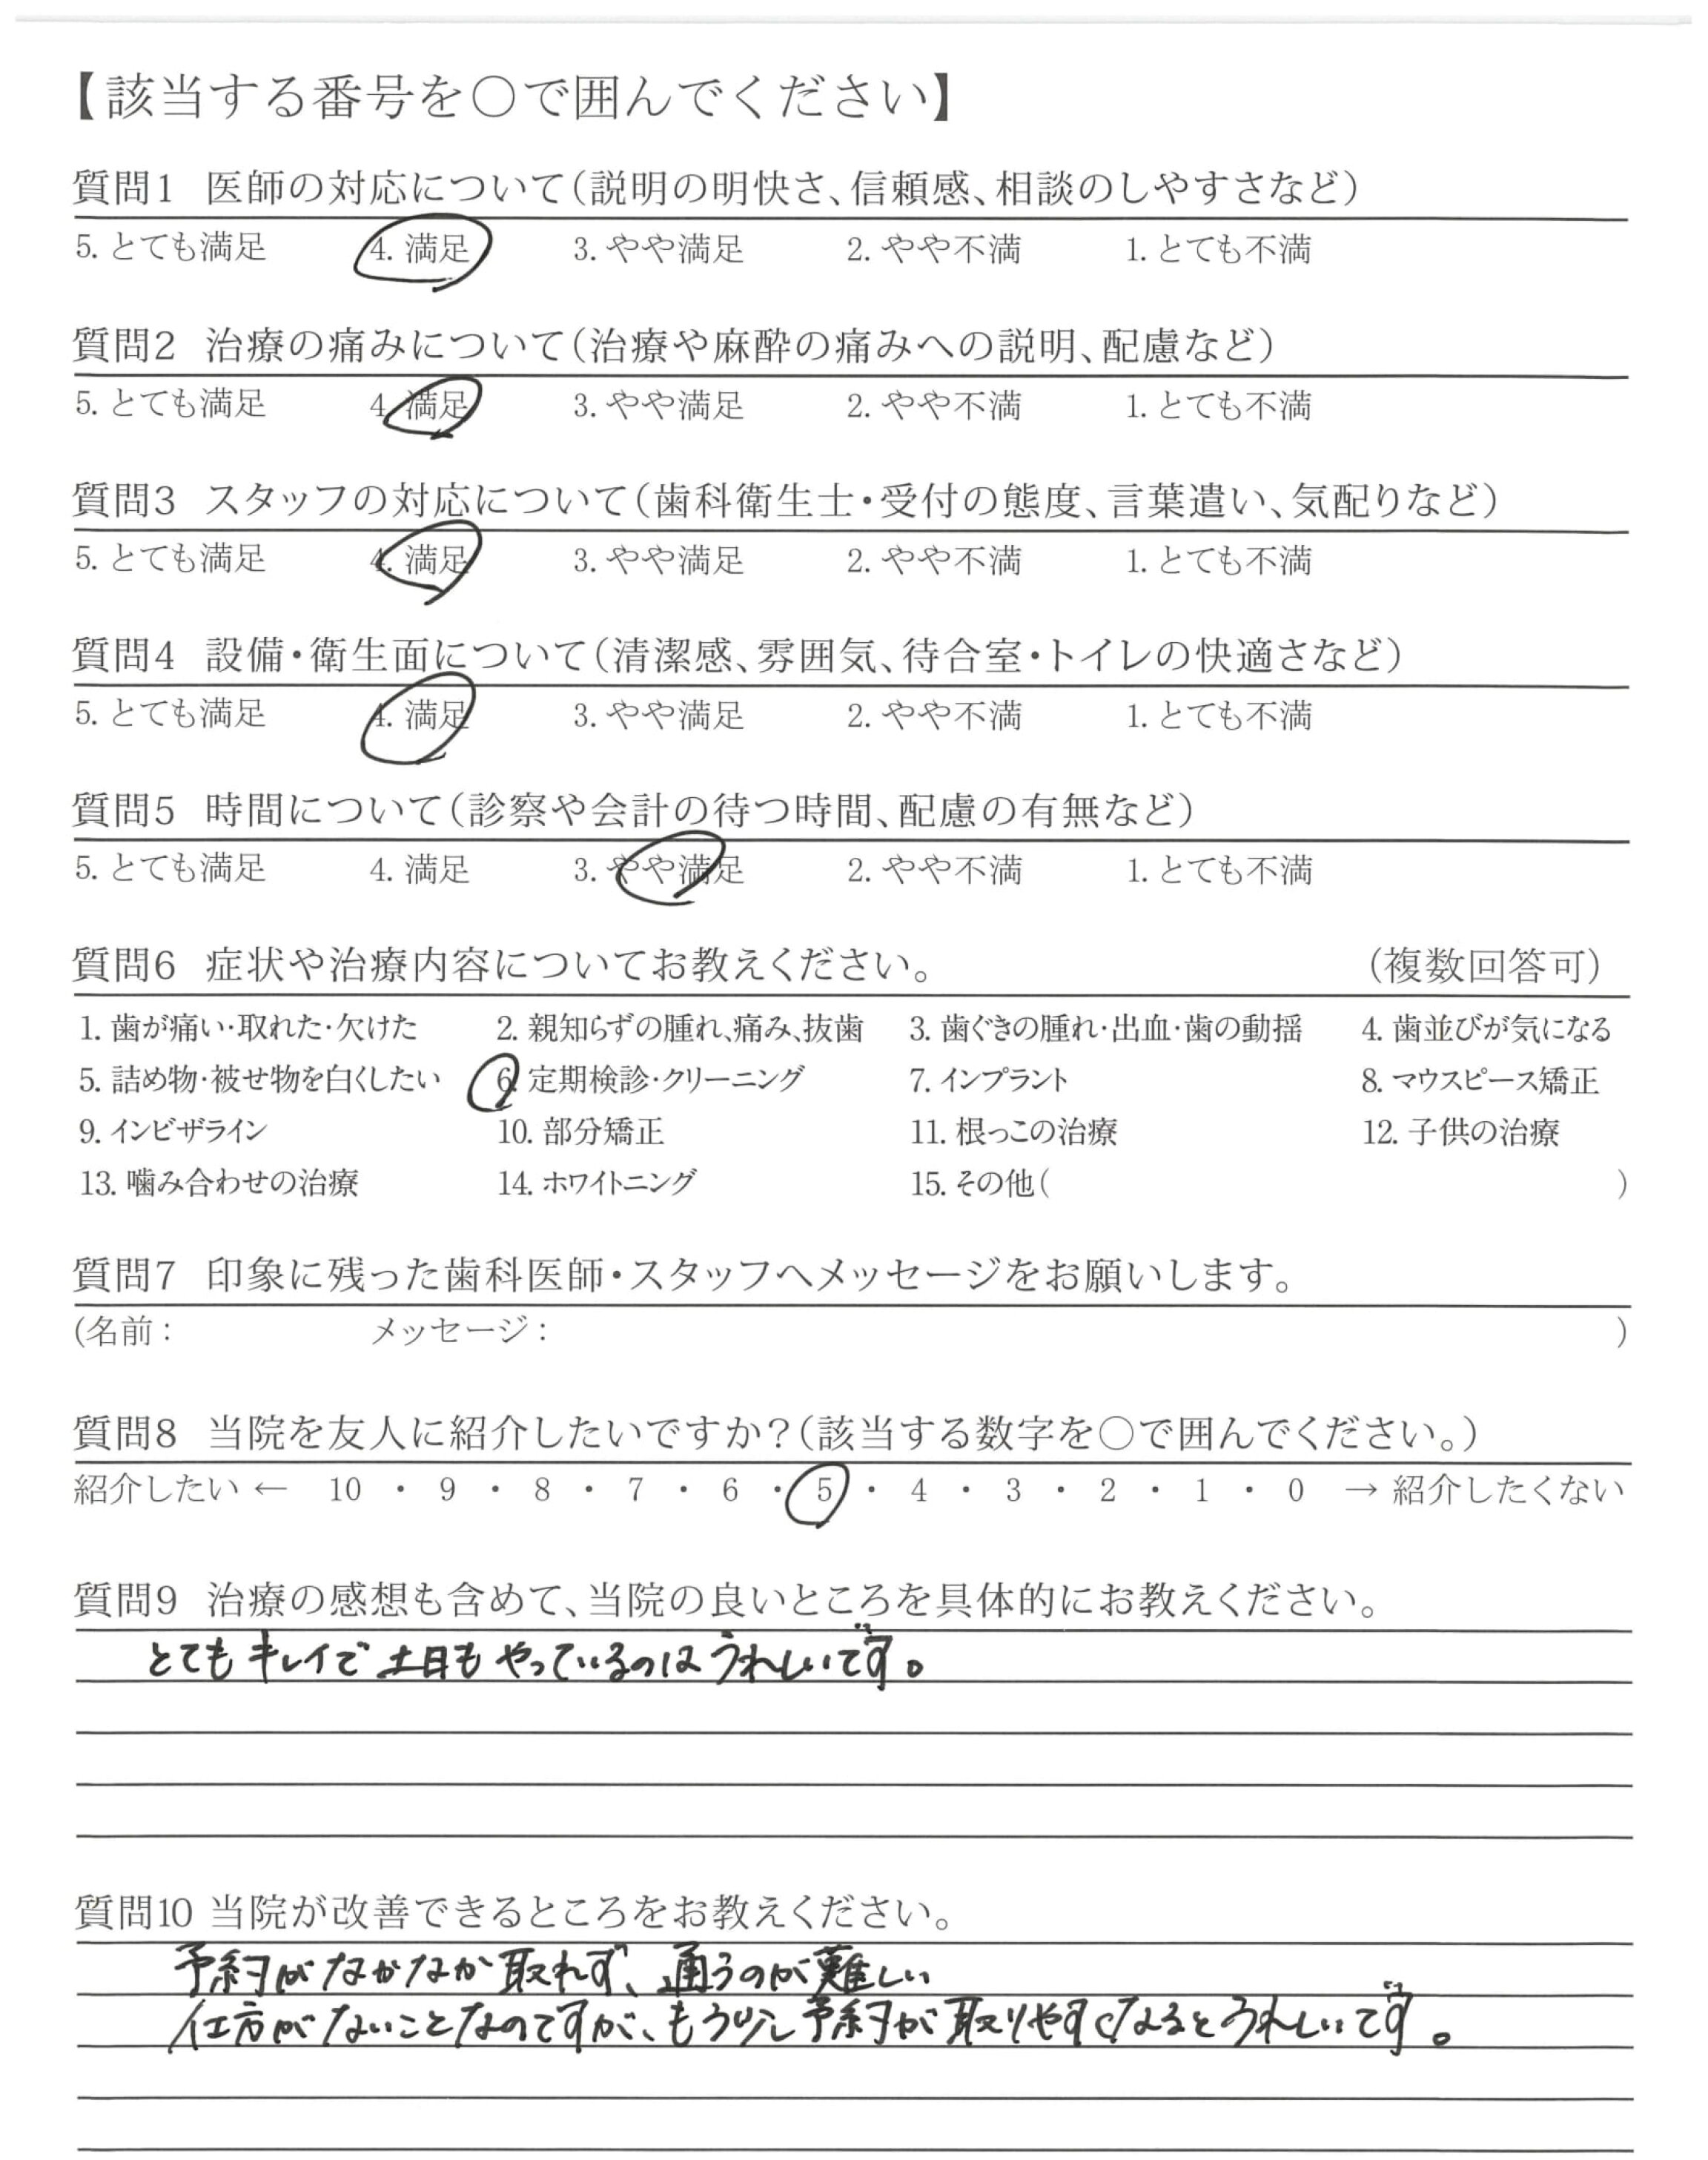 【該当する番号を○で囲んでください】
質問1 医師の対応について(説明の明快さ、信頼感、相談のしやすさなど)
5. とても満足 4. 満足 3. やや満足 2. やや不満 1. とても不満
質問2 治療の痛みについて(治療や麻酔の痛みへの説明、配慮など)
5. とても満足 4. 満足 3. やや満足 2. やや不満 1. とても不満
質問3 スタッフの対応について(歯科衛生士・受付の態度、言葉遣い、気配りなど)
5. とても満足 4. 満足 3. やや満足 2. やや不満 1. とても不満
質問4 設備・衛生面について(清潔感、雰囲気、待合室・トイレの快適さなど)
5. とても満足 4. 満足 3. やや満足 2. やや不満 1. とても不満
質問5 時間について(診察や会計の待つ時間、配慮の有無など)
5. とても満足 4. 満足 3. やや満足 2. やや不満 1. とても不満
質問6 症状や治療内容についてお教えください。 (複数回答可)
1. 歯が痛い・取れた・欠けた 2. 親知らずの腫れ、痛み、抜歯 3. 歯ぐきの腫れ・出血・歯の動揺 4. 歯並びが気になる
5. 詰め物・被せ物を白くしたい 6. 定期検診・クリーニング 7. インプラント 8. マウスピース矯正
9. インビザライン 10. 部分矯正 11. 根っこの治療 12. 子供の治療
13. 噛み合わせの治療 14. ホワイトニング 15. その他( )
質問7 印象に残った歯科医師・スタッフへメッセージをお願いします。
(名前: メッセージ: )
質問8 当院を友人に紹介したいですか?(該当する数字を○で囲んでください。)
紹介したい ← 10 ・ 9 ・ 8 ・ 7 ・ 6 ・ 5 ・ 4 ・ 3 ・ 2 ・ 1 ・ 0 → 紹介したくない
質問9 治療の感想も含めて、当院の良いところを具体的にお教えください。
とてもキレイで土日もやっているのはうれしいです。
質問10 当院が改善できるところをお教えください。
予約がなかなか取れず、通うのが難しい
仕方がないことなのですが、もう少し予約が取りやすくなるとうれしいです。